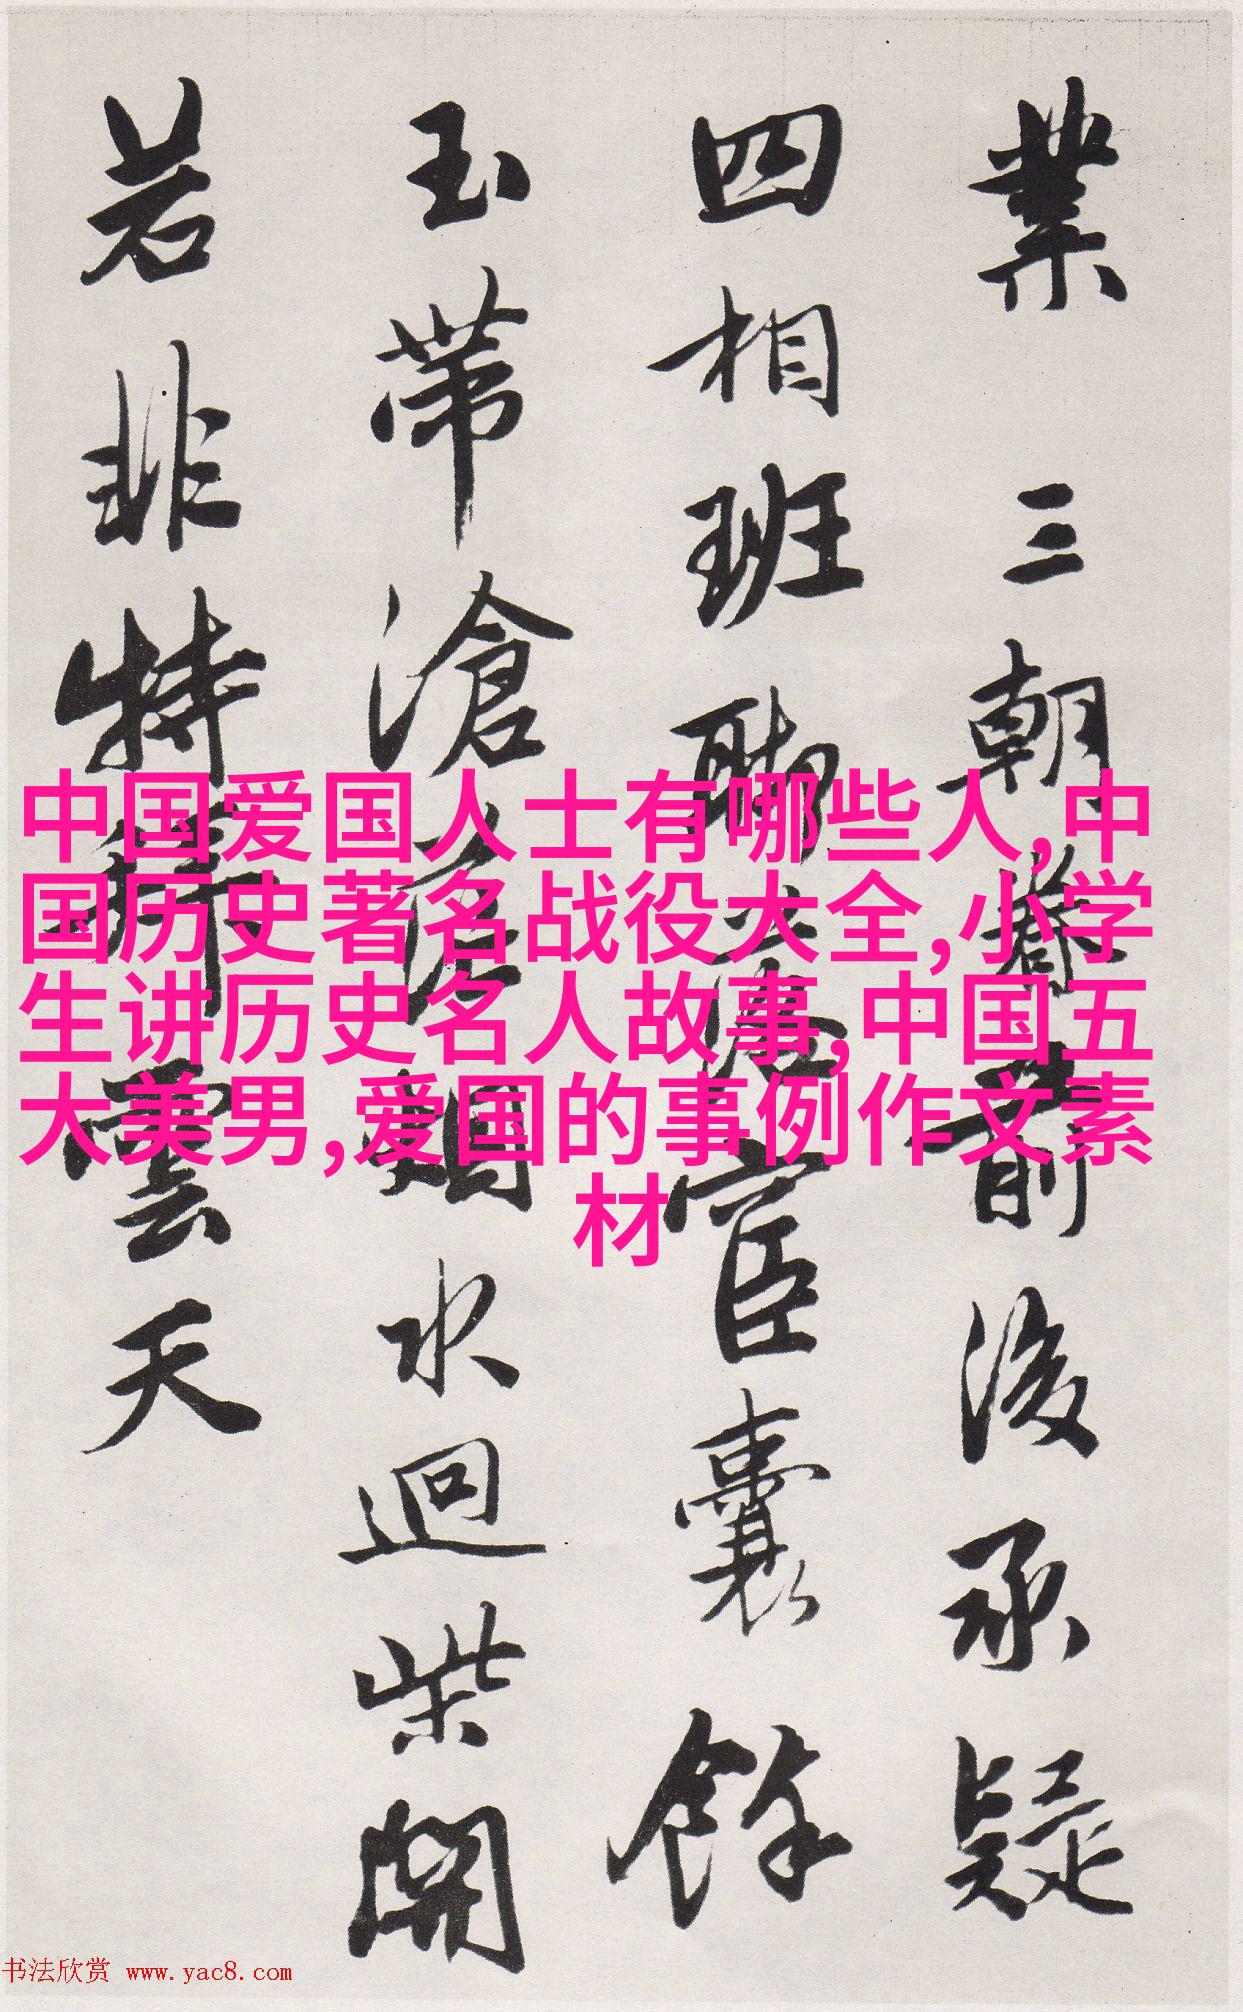 業三朝眷前後承疑
四相班聯宦囊餘
玉帶滄烟水迥柴開
若非特雲天
中国爱国人士有哪些人,中
国历史著名战役大全,小学
生讲历史名人故事,中国五
大美男,爱国的事例作文素
材
书法欣赏 www.yac8.com